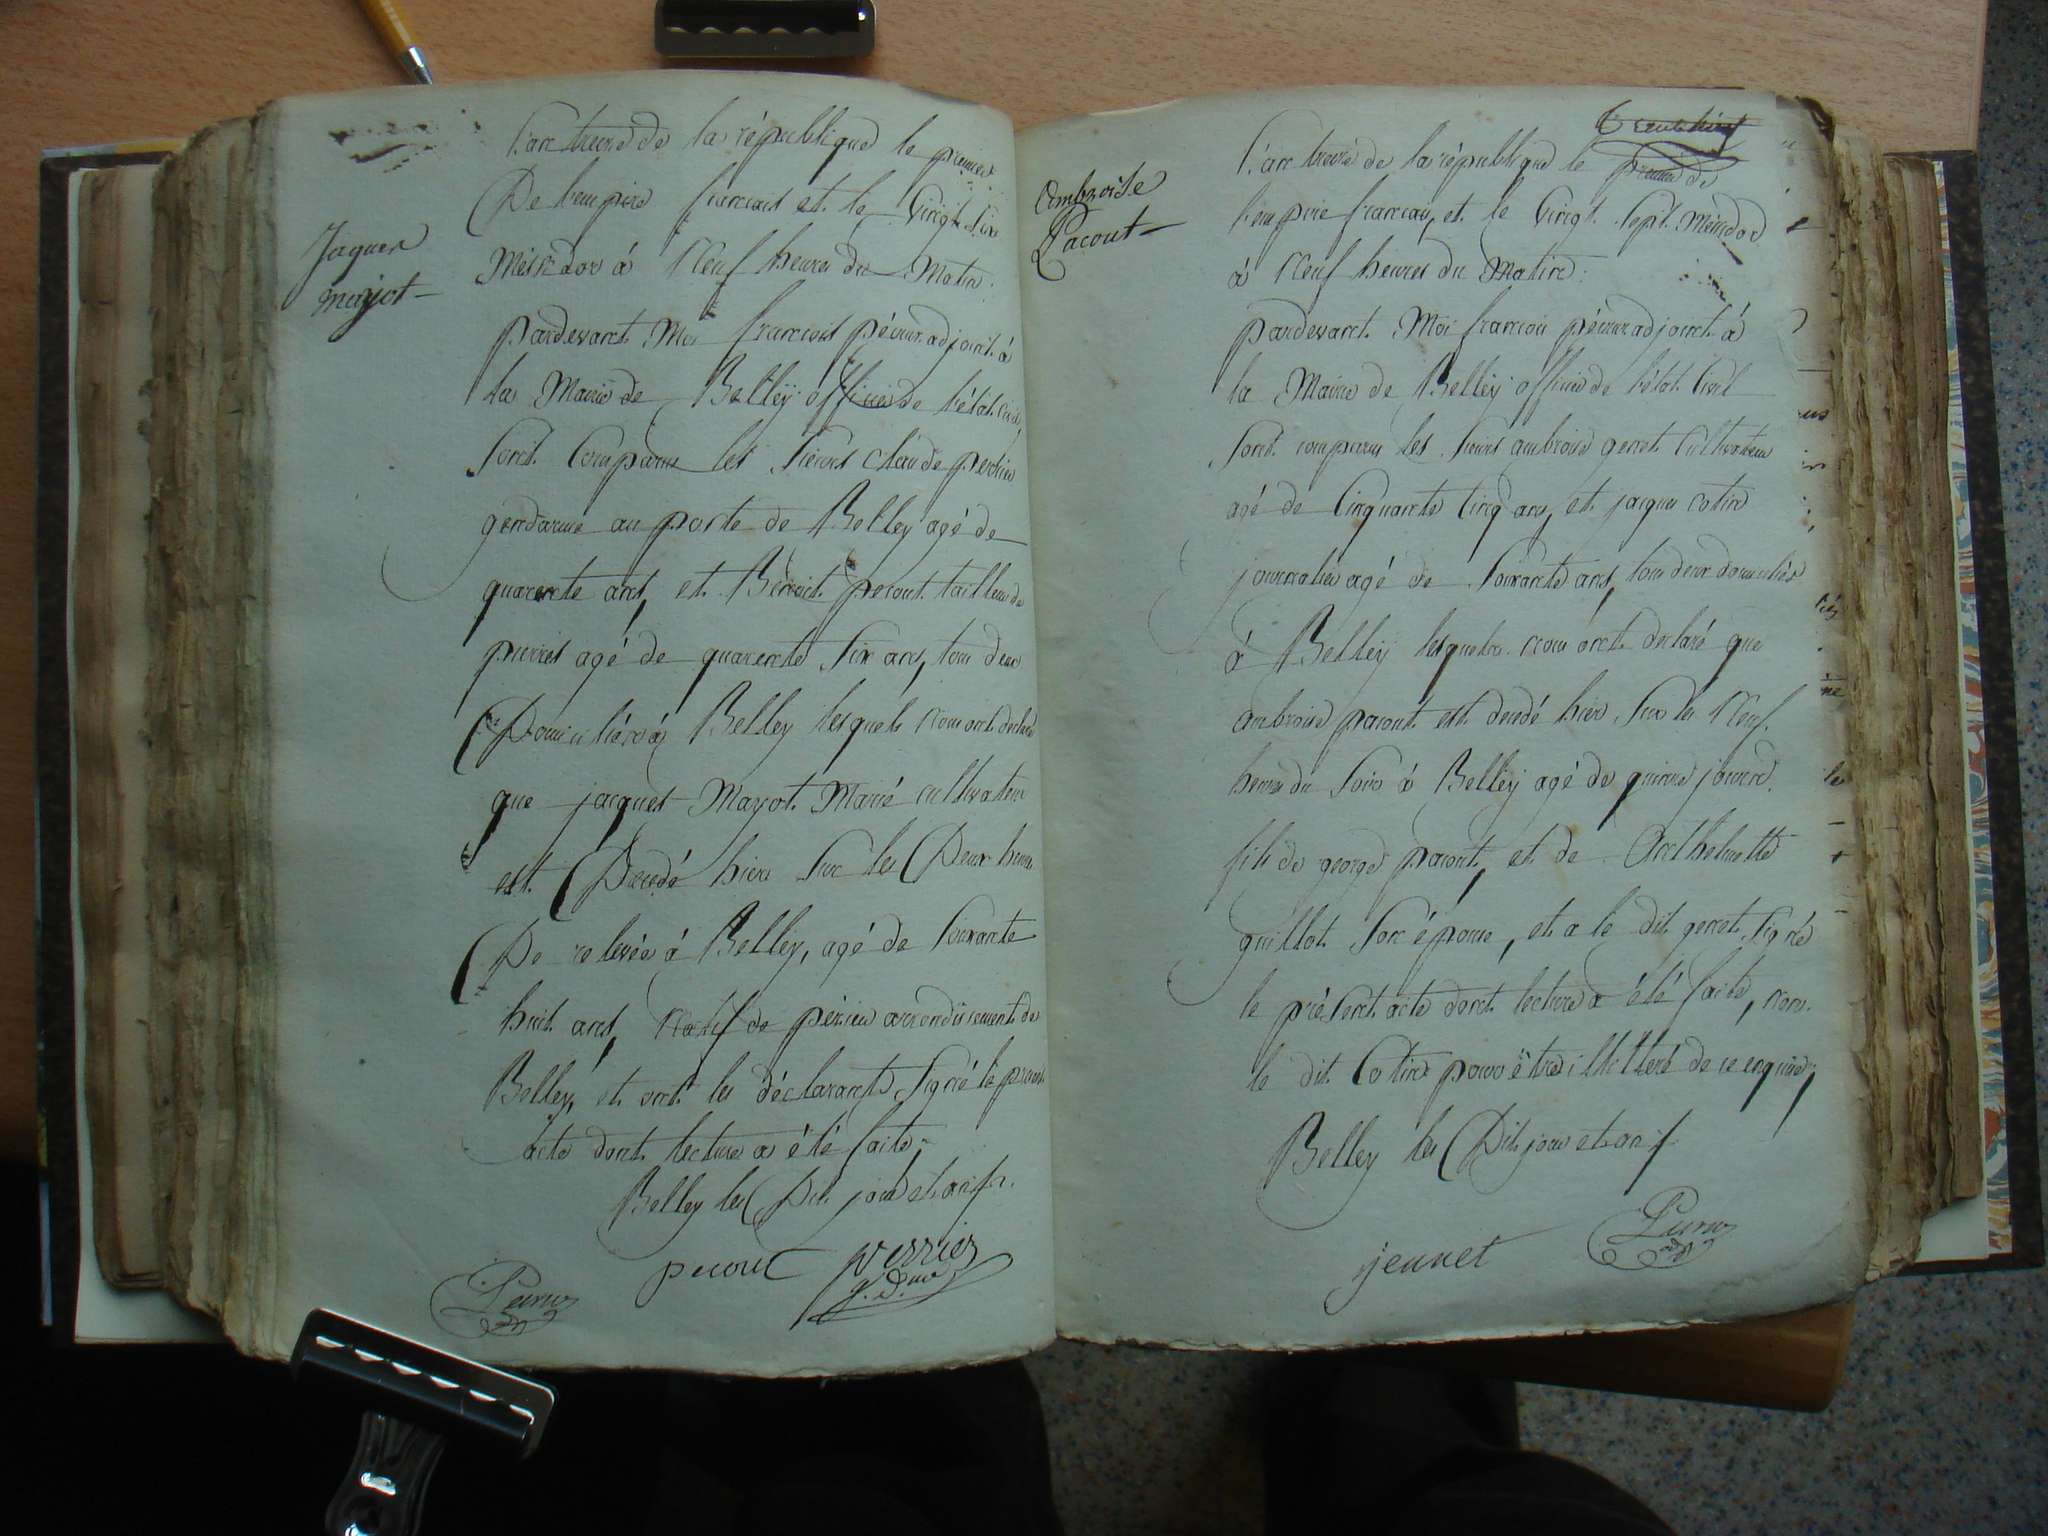 Jaques
marjot
L'an treize de la république le premier
De l'empire francais et le Vingt Six
Messidor à Neuf heures du Matin.
pardevant Moi francois péirus adjoint à
la Mairie de Belleÿ officier de l'état civil
Sont Comparus les Sieurs Claude perrier
gendarme au poste de Belley agé de
quarente ans, et Benoit pecout tailleur de
pierres agé de quarente Six ans, tous deux
Domiciliés à Belley lesquels nous ont déclaré
que jacques Marjot Marié cultivateur
est Décédé hier Sur les Deux heures
De relevée à Belleÿ, agé de Soixante
huit ans, Natif de arrondissement de
Belley, et ont les déclarants Signé le présent
acte dont lecture a été faite,
Belley les Dits jour et an
pecout
j. d.me
Ambroise
Pacout
L'an treize de la république le premier de
l'empire francais, et le Vingt Sept Messidor
à Neuf heures du Matin.
pardevant Moi francois péirus adjoint à
la Mairie de Belleÿ officier de l'état Civil
Sont comparus les Sieurs ambroise genet Cultivateur
agé de Cinquante Cinq ans, et jacques cotin
journalier agé de Soixante ans, tous deux domiciliés
à Belleÿ lesquels nous ont declaré que
ambroise pacout est décédé hier Sur les Neuf
heures du Soir à Belleÿ agé de quinze jours
fils de george pacout, et de Anthelmette
guillot Son épouse, et a le dit genet Signé
le présent acte dont lecture a été faite, non
le dit Cotin pour être illitteré de ce enquis,
Belley les Dits jour et an
jennet